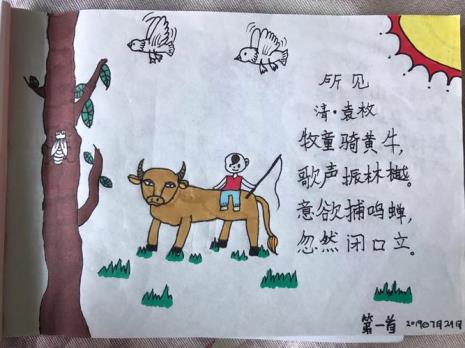 所见
清·袁枚
牧童骑黄牛，
歌声振林樾。
意欲捕鸣蝉，
忽然闭口立。
第一首 2019年7月29日